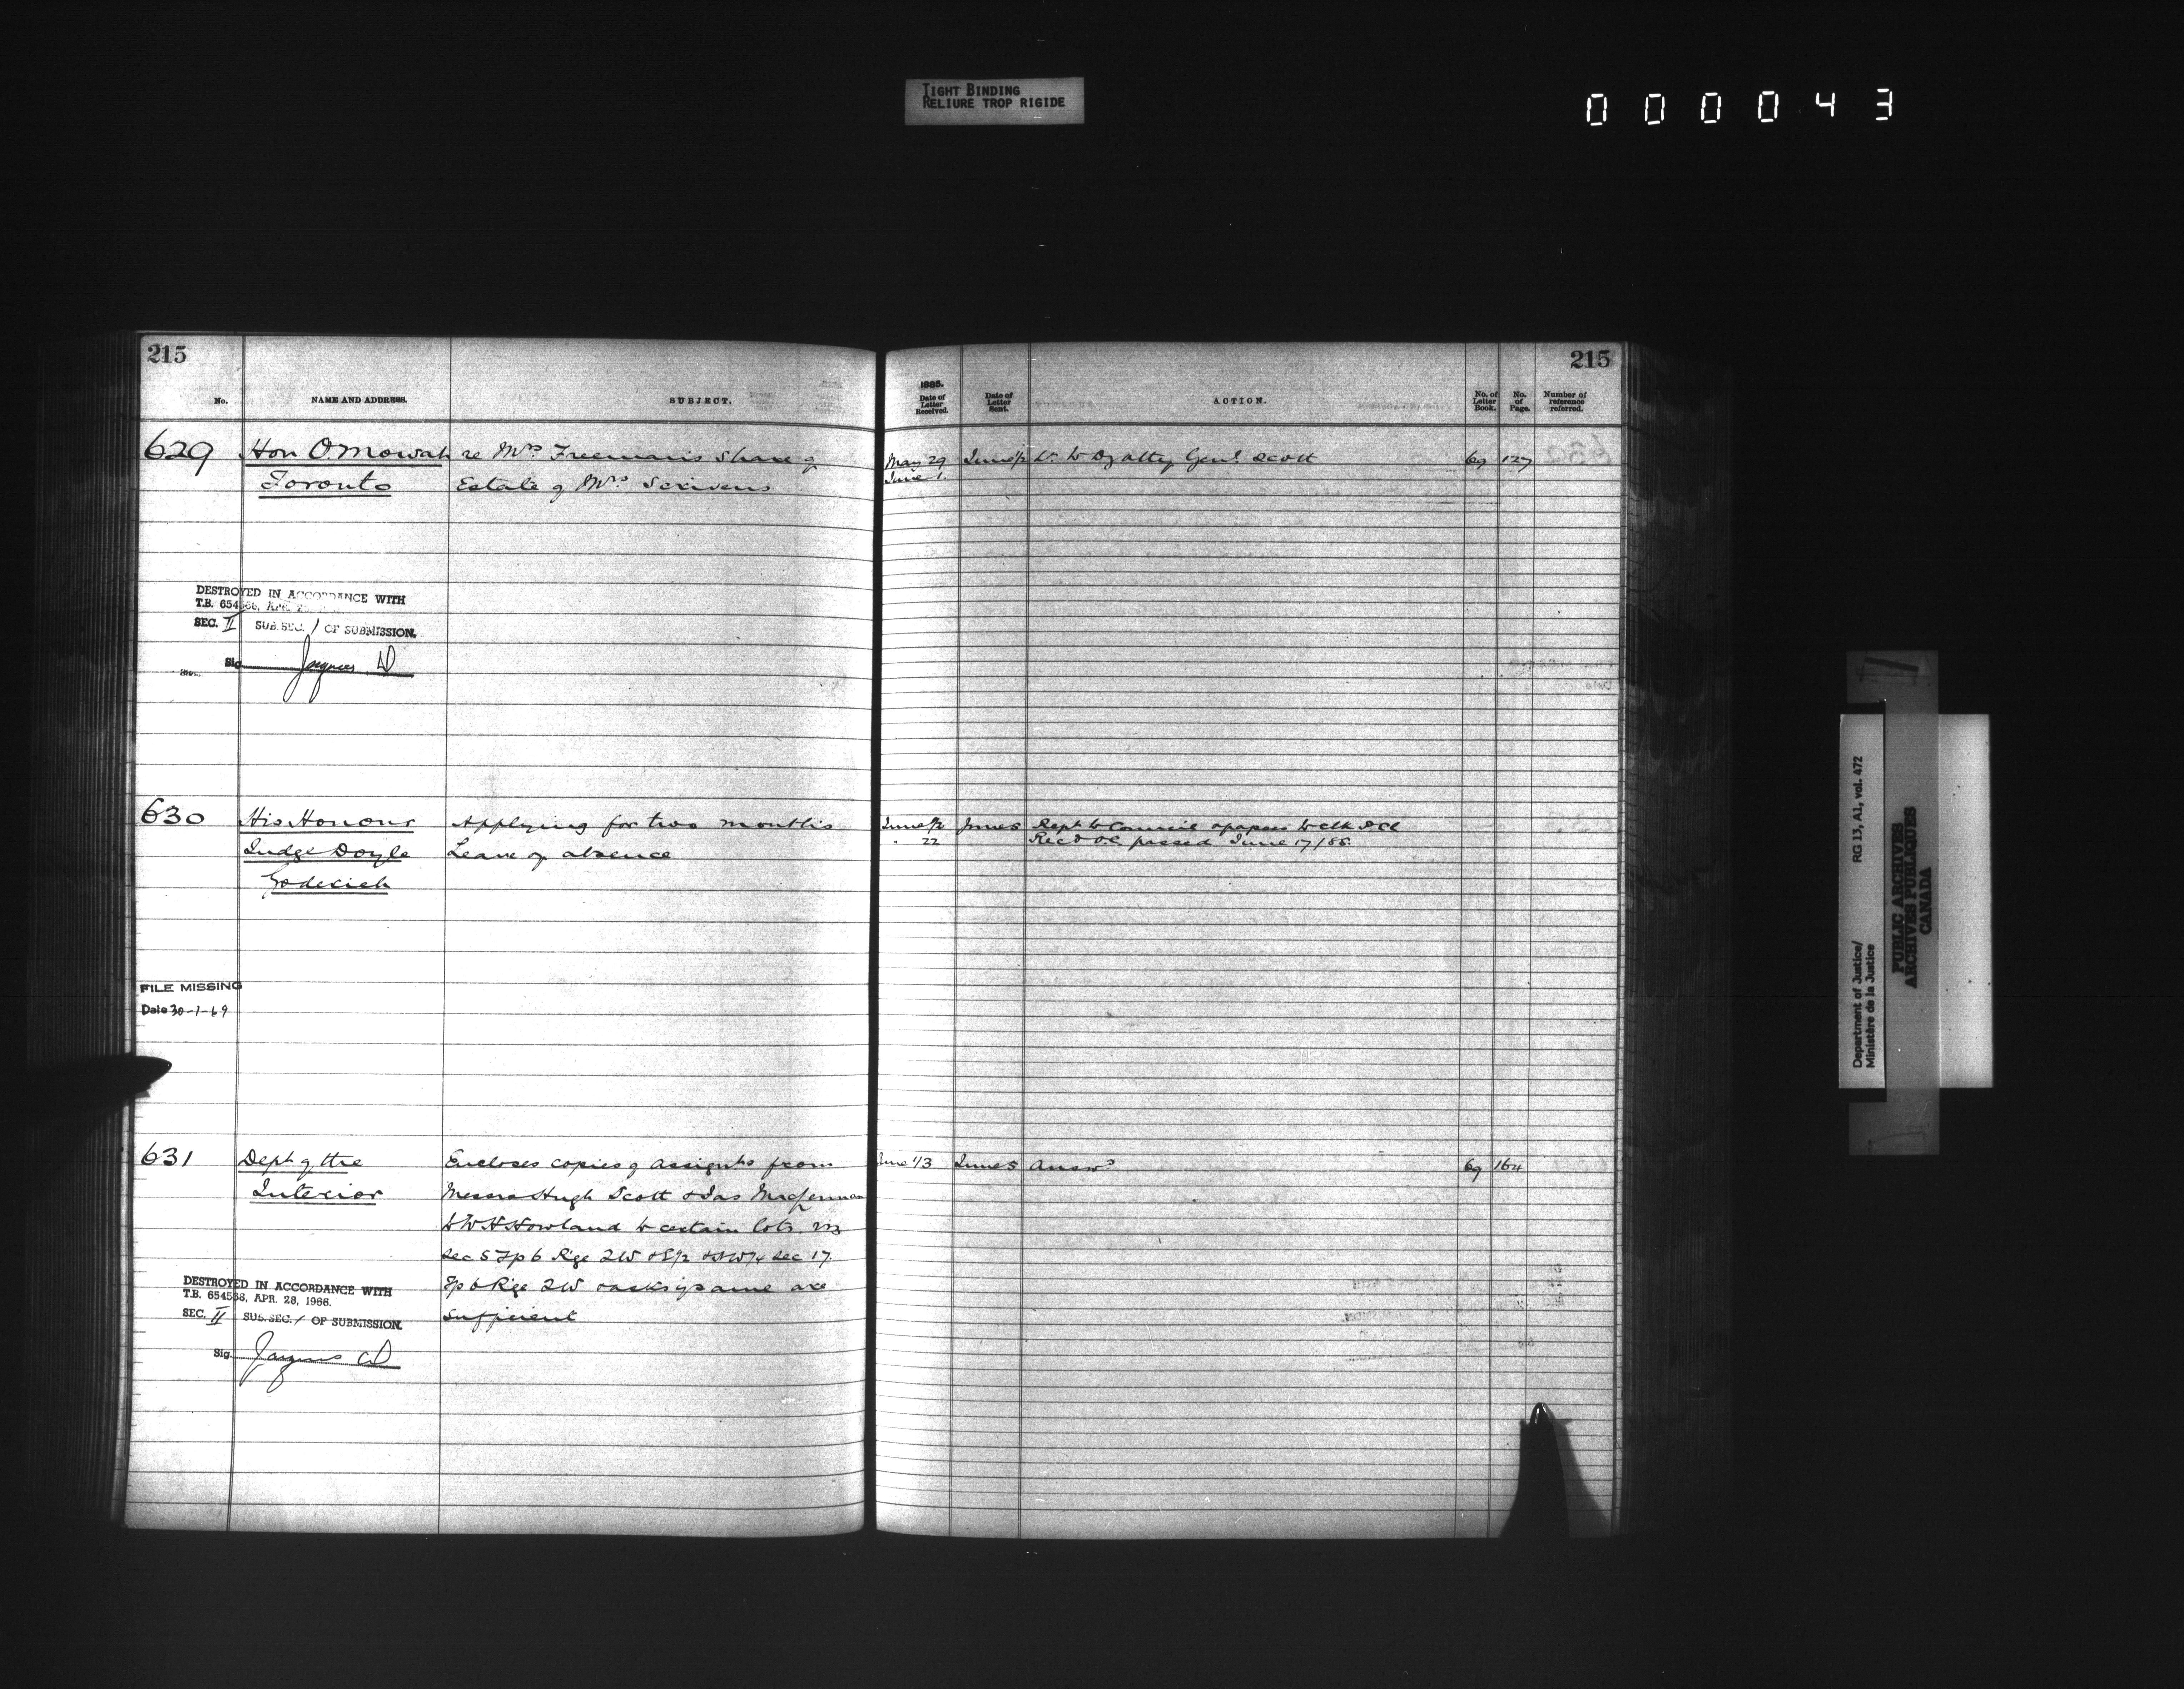 TIGHT BINDING
RELIURE TROP RIGIDE
000043
215
No.
NAME AND ADDRESS.
SUBJECT.
629 Hon O. Mowat re Mrs Freeman's share of
Toronto Estate of Mrs Scrivens
DESTROYED IN ACCORDANCE WITH
T.B. 654568, APR. 2
SEC. II SUB. SEC. 1 OF SUBMISSION.
Sig. Jaques
630 His Honour Applying for two months
Judge Doyle Leave of absence
Goderich
FILE MISSING
Date 30-1-69
631 Dept of the Encloses copies of assignts from
Interior Messrs Hugh Scott & Jas
to W H Howland to certain lots. viz
Sec 5 Tp 6 Rge 2W & E1/2 & NW1/4 Sec 17.
Tp 6 Rge 2W & asks if same are
sufficient
DESTROYED IN ACCORDANCE WITH
T.B. 654568, APR. 28, 1966.
SEC. II SUB. SEC. 1 OF SUBMISSION.
Sig. Jaques
215
1885.
Date of
Letter
Received.
Date of
Letter
Sent.
ACTION.
No. of
Letter
Book.
No.
of
Page.
Number of
reference
referred.
May 29 June 1/2 Lr. to Dy Atty Genl. Scott 69 127
June 1.
June 1/2 June 5 Rept to Council & papers to Clk
" 22 Recd O.C. passed June 17/85.
June 1/3 June 5 Answd 69 164
Department of Justice/
Ministère de la Justice
RG 13, A1, vol. 472
PUBLIC ARCHIVES
ARCHIVES PUBLIQUES
CANADA